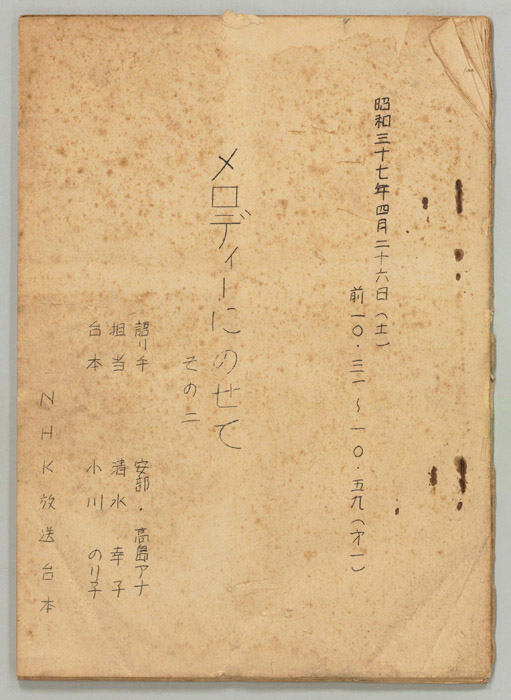 昭和三十七年四月二十六日(土)
前一〇・三一〜一〇・五九(才一)
メロディーにのせて
その二
語り手 安部・高島アナ
担当 清水幸子
台本 小川のり子
NHK放送台本